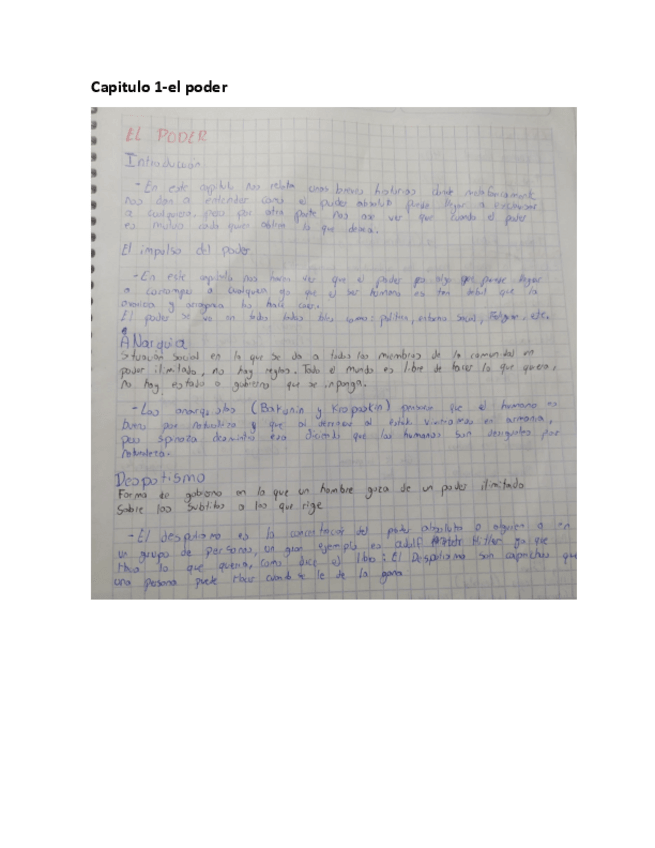 Capitulo 1-el poder
EL PODER
Introducción
- En este capitulo nos relata unas breves historias donde metaforicamente
nos dan a entender como el poder absoluto puede llegar a
a cualquiera, pero por otra parte nos ase ver que cuando el poder
es mutuo cada quien obtiene lo que desea.
El impulso del poder
- En este capitulo nos hacen ver que el poder es algo que puede llegar
a corromper a cualquiera ya que el ser humano es tan debil que la
avaricia y arrogancia los hace caer.
El poder se ve en todos lados tales como: politica, entorno social, Religion, etc.
ANarquia
Situación social en la que se da a todos los miembros de la comunidad un
poder ilimitado, no hay reglas. Todo el mundo es libre de hacer lo que quiera,
no hay estado o gobierno que se imponga.
- Los anarquistas (Bakunin y Kropotkin) piensan que el humano es
bueno por naturaleza y que al el estado en armonia,
pero Spinoza desmintió eso diciendo que los humanos son desiguales por
naturaleza.
Despotismo
Forma de gobierno en la que un hombre goza de un poder ilimitado
Sobre los Subditos a los que rige
- El despotismo es la concentración del poder absoluto a alguien o en
un grupo de personas, un gran ejemplo es adolf Hitler ya que
hizo lo que queria, como dice el libro: El Despotismo son caprichos que
una persona puede hacer cuando se le de la gana